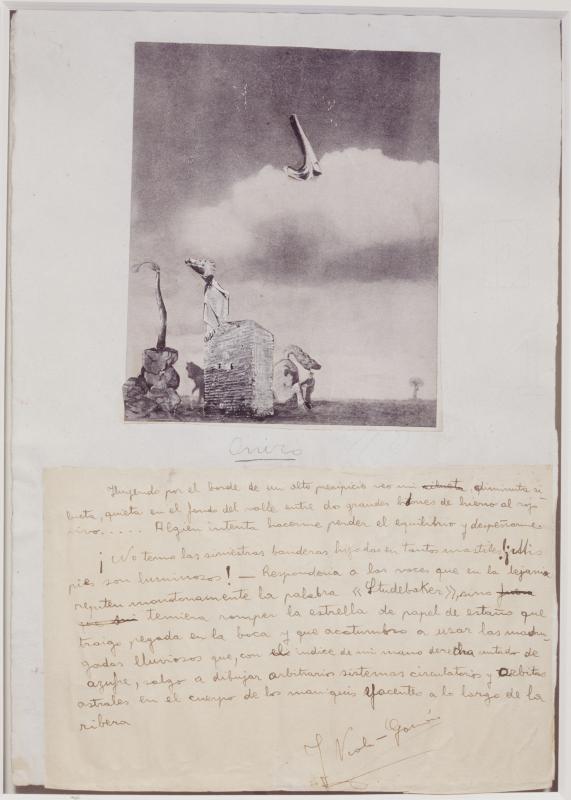 Huyendo por el borde de un alto precipicio veo mi diminuta si
lueta, quieta en el fondo del valle entre dos grandes bloques de hierro al rojo
vivo..... Alguien intenta hacerme perder el equilibrio y despeñarme.
¡No temo las siniestras banderas hizadas en tantos mastiles! ¡Mis
pies son luminosos! — Responderia a las voces que en la lejania
repiten monotonamente la palabra «Studebaker», sino
temiera romper la estrella de papel de estaño que
traigo, pegada en la boca y que acostumbro a usar las madru-
gadas lluviosas que, con el indice de mi mano derecha untado de
azufre, salgo a dibujar arbitrarios sistemas circulatorios y orbitas
astrales en el cuerpo de los maniquis yacentes a lo largo de la
ribera
J Viola-Gamón